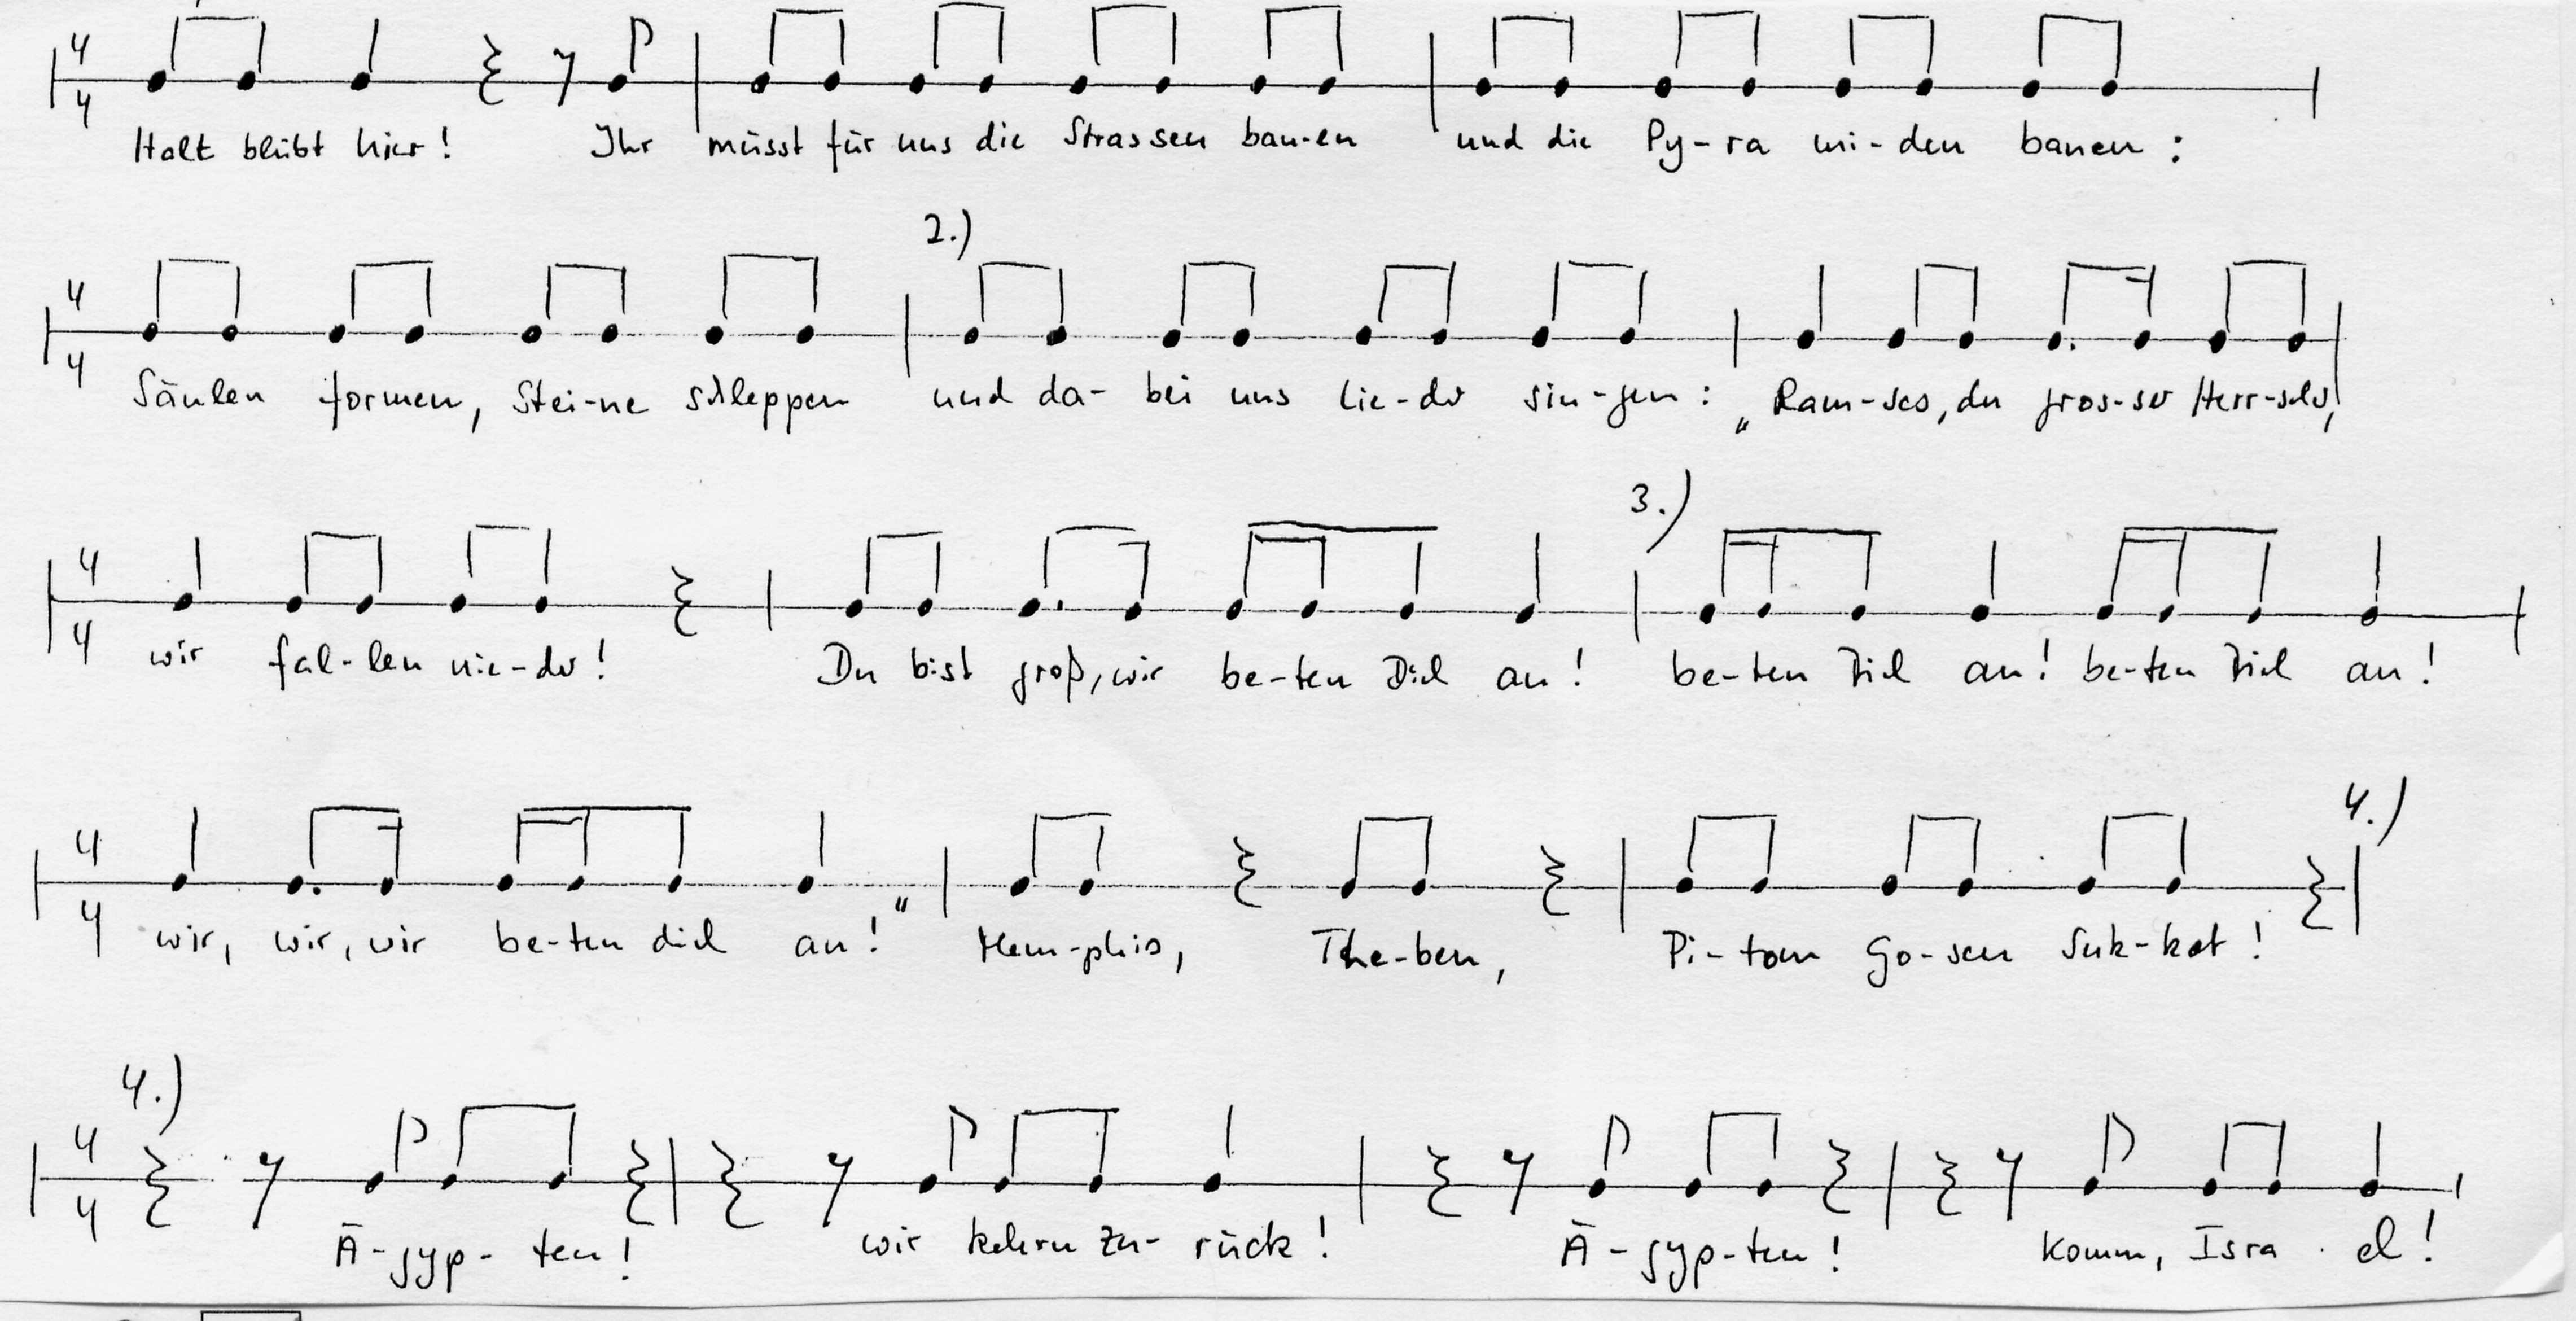 4/4 Halt bleibt hier! Ihr müsst für uns die Strassen bau-en und die Py-ra mi-den bauen:
2.)
4/4 Säulen formen, Stei-ne schleppen und da- bei uns Lie-der sin-gen: „Ram-ses, du gros-ser Herr-scher,
3.)
4/4 wir fal-len nie-der! Du bist groß, wir be-ten Dich an! be-ten Dich an! be-ten Dich an!
4.)
4/4 wir, wir, wir be-ten dich an!" Mem-phis, The-ben, Pi-tom Go-sen Suk-kot!
4.)
4/4 Ä-gyp-ten! wir kehrn zu-rück! Ä-gyp-ten! Komm, Isra-el!